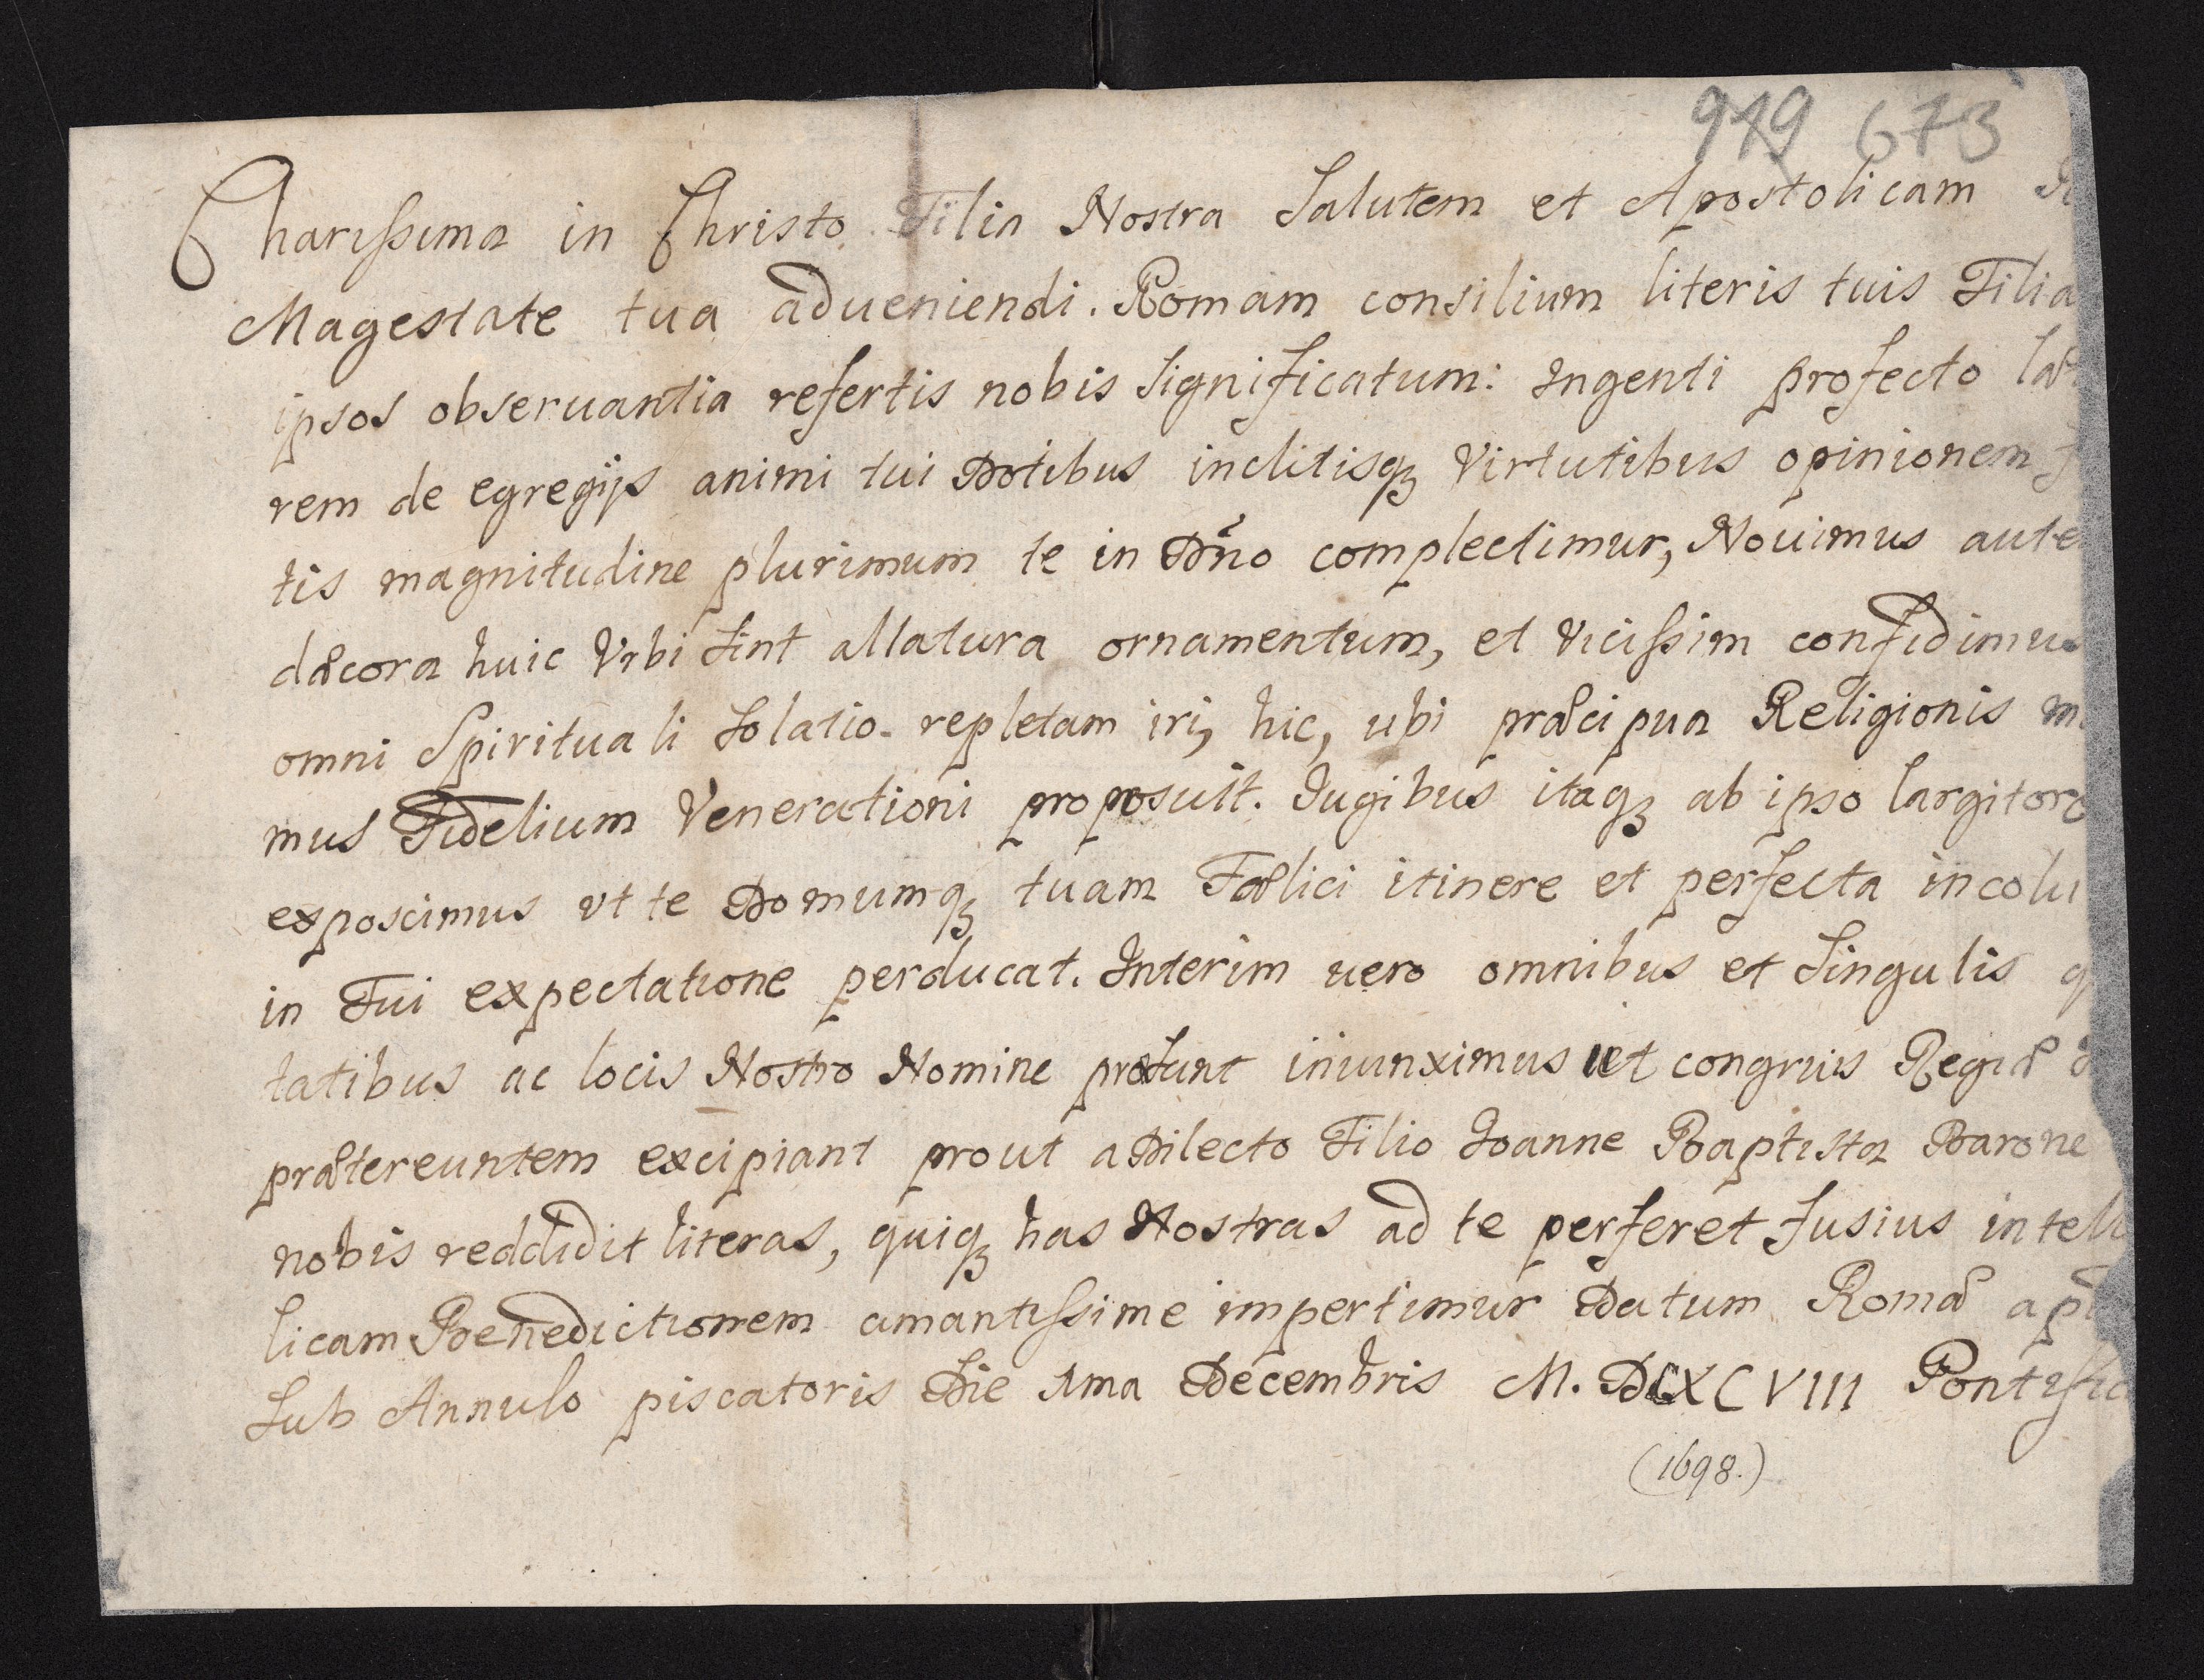 949 673
Charissima in Christo Filia Nostra Salutem et Apostolicam
Magestate tua adueniendi. Romam consilium literis tuis Filia
ipsos obseruantia refertis nobis significatum: Ingenti profecto læ
rem de egregijs animi tui Dotibus inclitisqꝫ Virtutibus opinionem
tis magnitudine plurimum te in Dño complectimur, Nouimus aute
dæcora huic Vrbi sint allatura ornamentum, et vicissim confidimus
omni Spirituali solatio repletam iri, hic, ubi præcipua Religionis m
mus Fidelium Venerationi proposuit. Jugibus itaqꝫ ab ipso largitore
exposcimus vt te Domumqꝫ tuam Fælici itinere et perfecta incolu
in Tui expectatione perducat. Interim uero omnibus et singulis q
tatibus ac locis Nostro Nomine præsunt iniunximus ut congruis Regiæ
prætereuntem excipiant prout a Dilecto Filio Joanne Baptista Barone
nobis reddidit literas, quiqꝫ has Nostras ad te perferet fusius intell
licam Benedictionem amantissime impertimur Datum Romæ ap
sub Annulo piscatoris Die Ama Decembris M. DCXCVIII Pontific
(1698.)